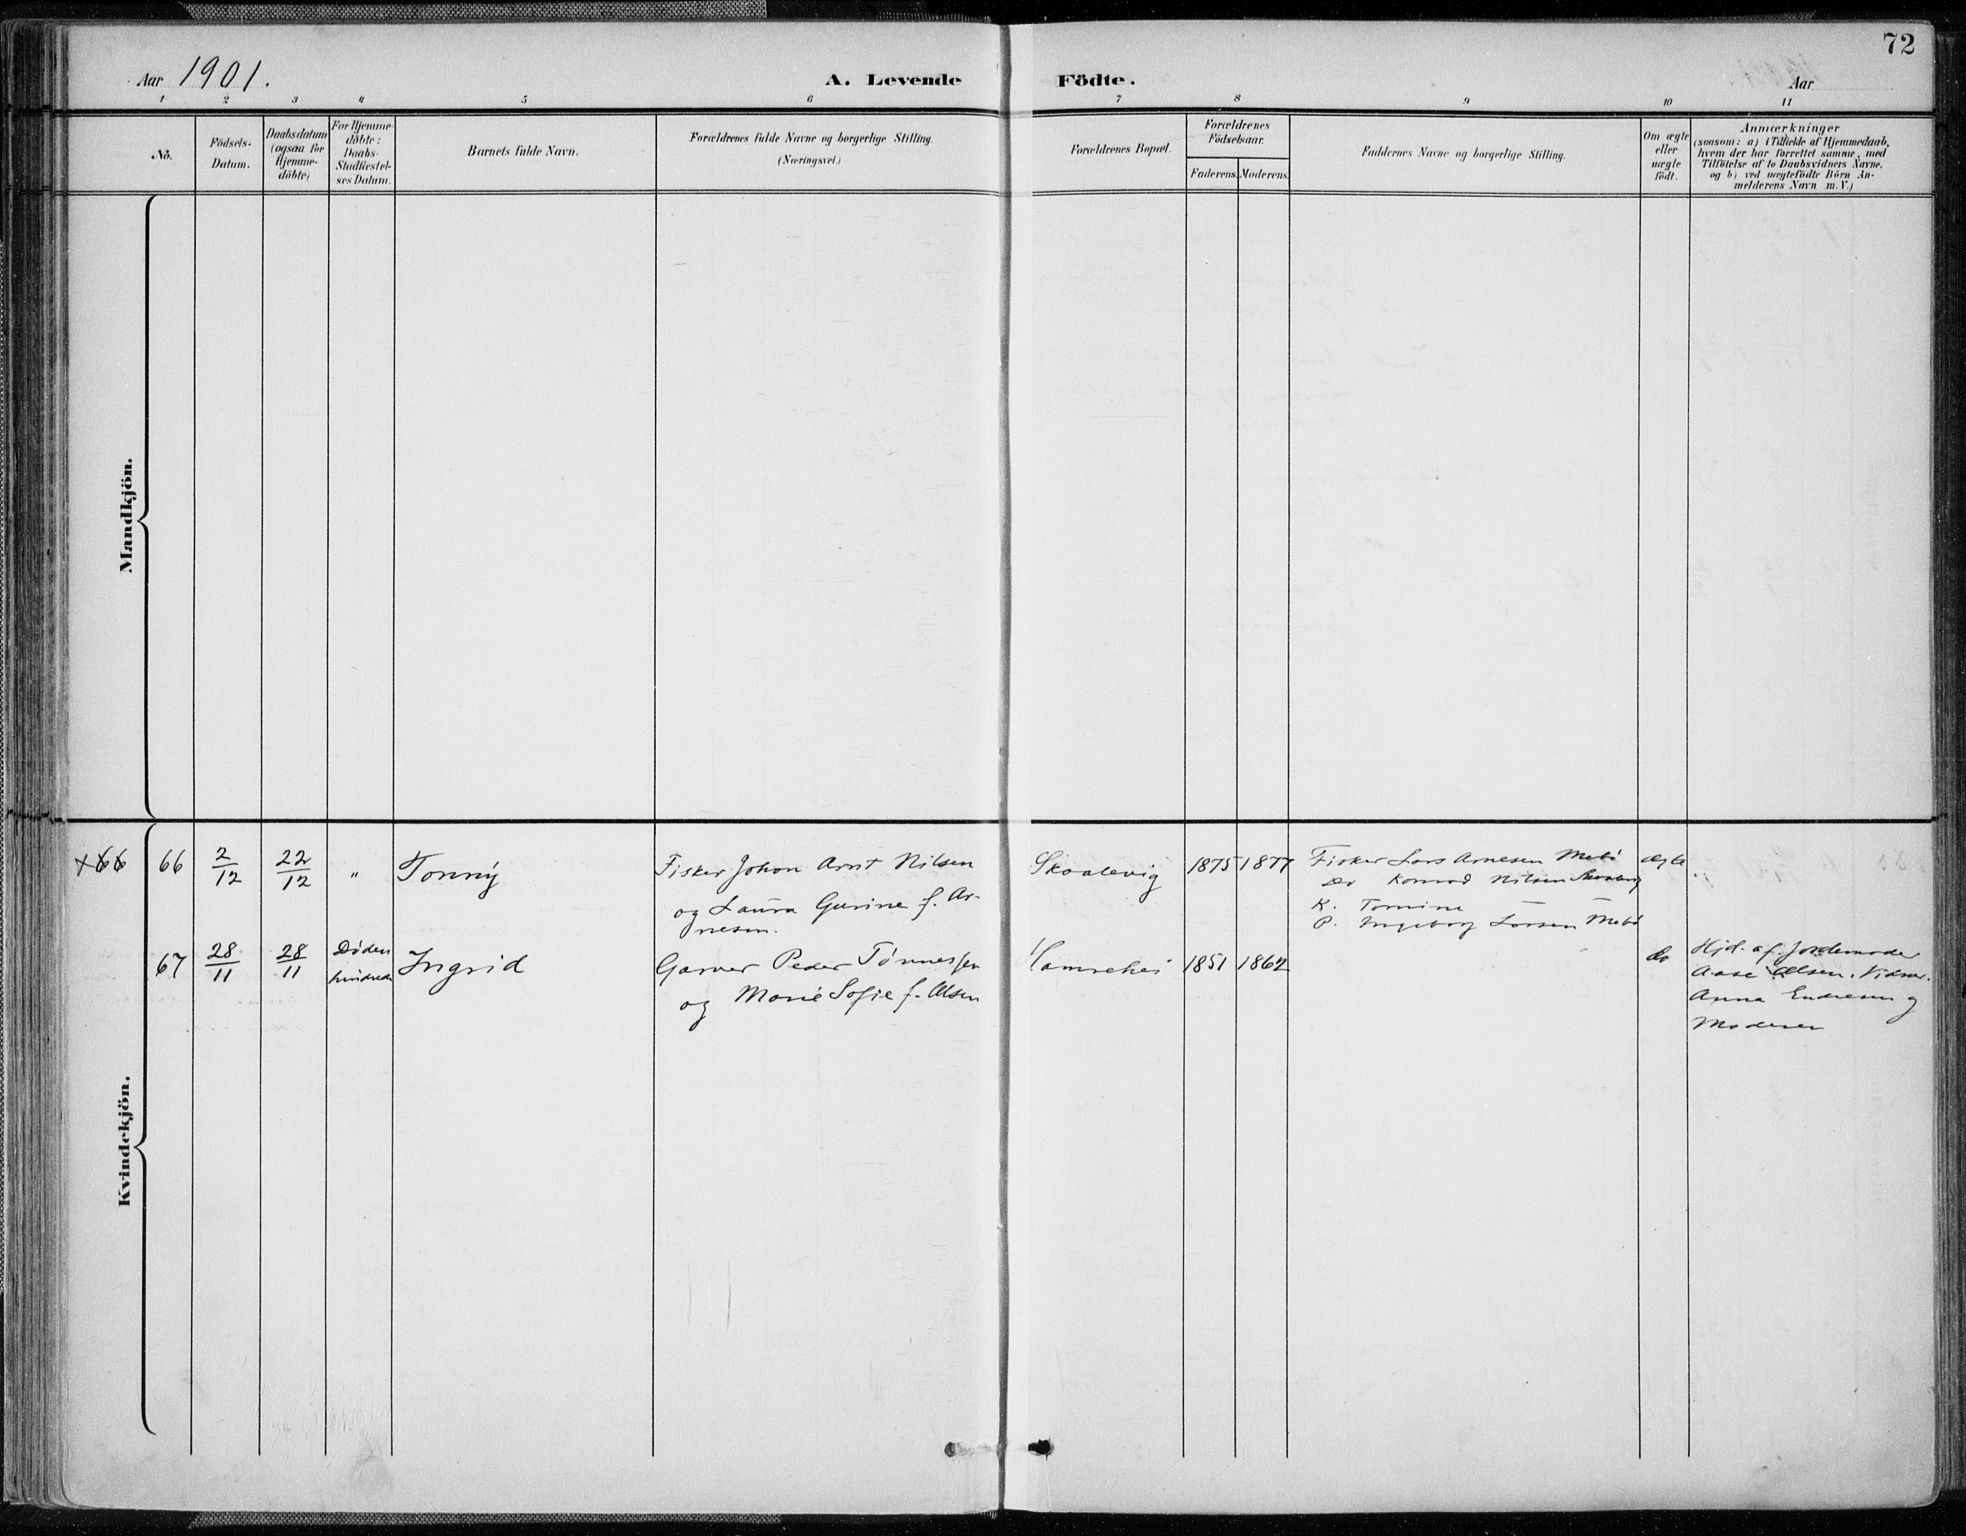 72
Aar 1901.
A. Levende Födte.
Aar
1 2 3 4 5 6 7 8 9 10 11
No.
Födsels-
Datum.
Daabsdatum
(ogsaa for
Hjemme-
döbte)
For Hjemme-
döbte:
Daabs-
Stadfæstel-
ses Datum.
Barnets fulde Navn.
Forældrenes fulde Navne og borgerlige Stilling.
(Næringsvei.)
Forældrenes Bopæl.
Forældrenes
Födselsaar.
Faderens. Moderens.
Faddernes Navne og borgerlige Stilling.
Om ægte
eller
uægte
født.
Anmærkninger
(saasom: a) i Tilfælde af Hjemmedaab,
hvem der har forrettet samme, med
Tilföielse af to Daabsvidners Navne,
og b) ved uægtefödte Börn An-
melderens Navn m. V.)
Mandkjön.
Kvindekjön.
+66
66
2/12
22/12
"
Tonny
Fisker Johan Arnt Nilsen
og Laura Gurine f. Ar-
nesen.
Skaalevig
1875 1877
Fisker Lars Arnesen Mebö
Do Konrad Nilsen
K. Tomine —
P. Ingeborg Larsen Mebö
ægte
67
28/11
28/11
Døden
hindrede
Ingrid
Garver Peder Tönnessen
og Marie Sofie f. Olsen
1851 1862
do
Hjd. af Jordemoder
Aase Olsen. Vidner.
Anna Endresen og
Moderen